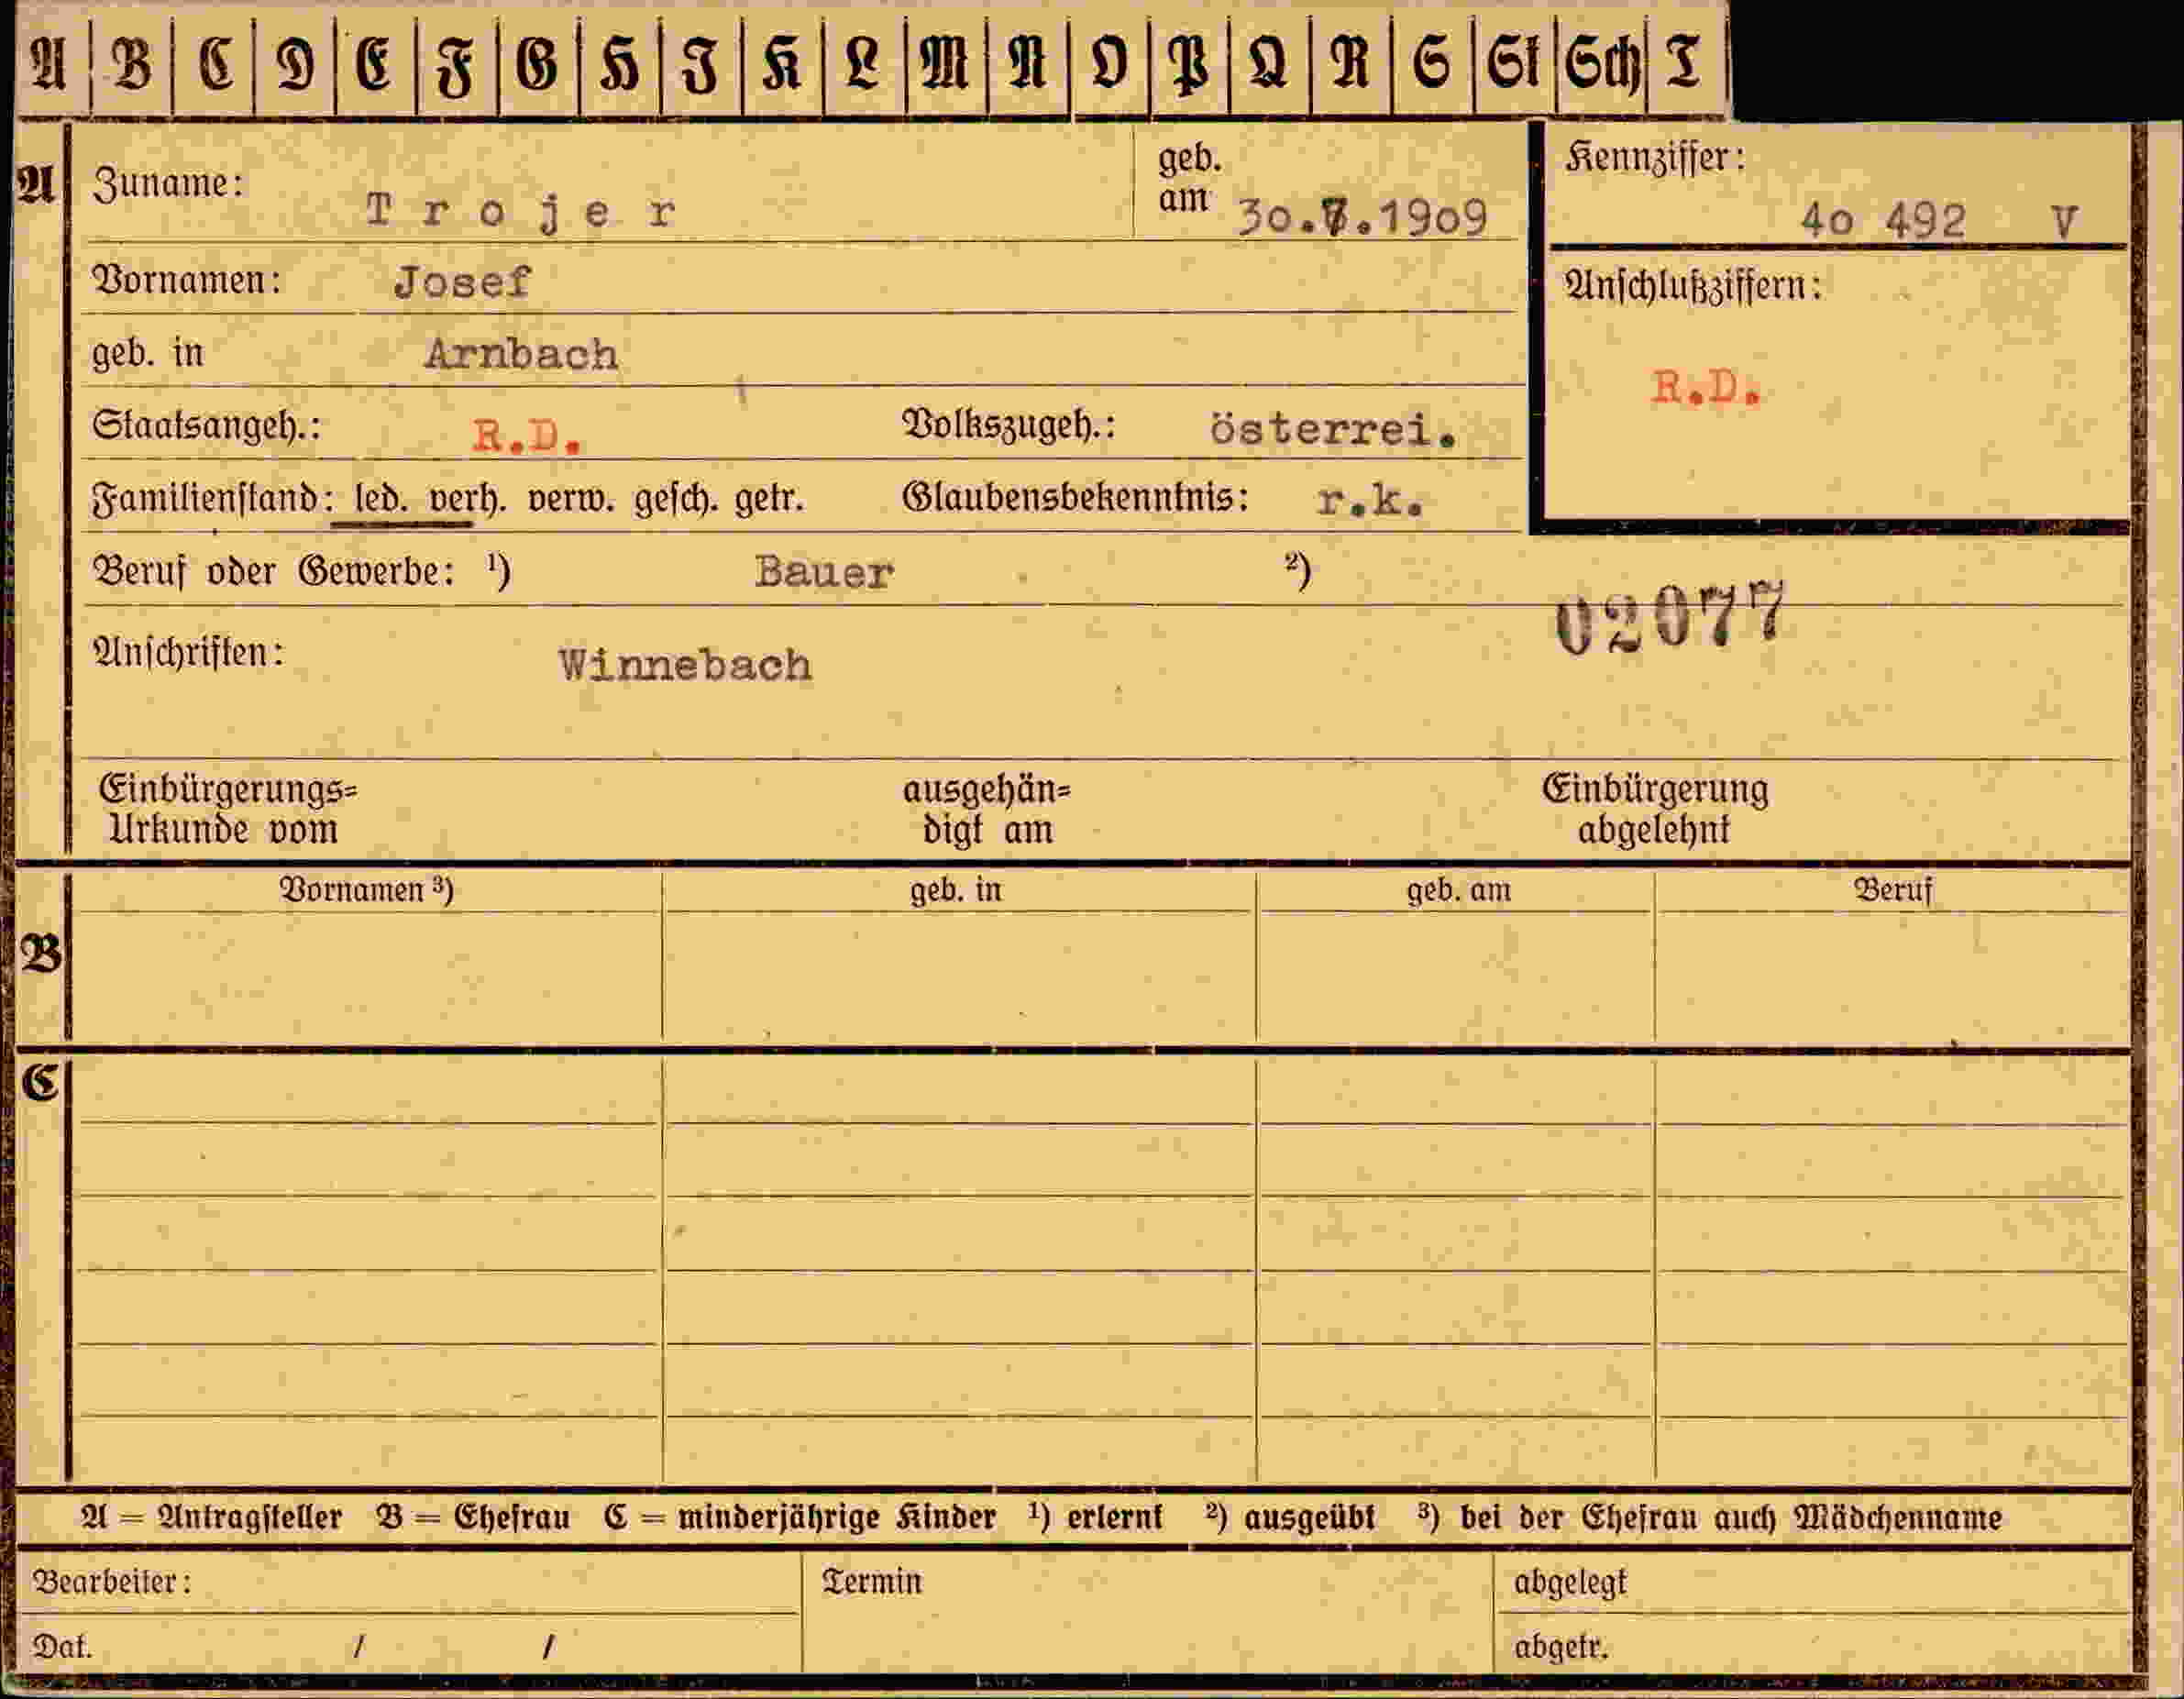 A B C D E F G H I K L M N O P Q R S St Sch T
A Zuname: Trojer geb. am 30.7.1909 Kennziffer: 4o 492 V
Vornamen: Josef Anschlußziffern:
geb. in Arnbach R.D.
Staatsangeh.: R.D. Volkszugeh.: österrei.
Familienstand: led. verh. verw. gesch. getr. Glaubensbekenntnis: r.k.
Beruf oder Gewerbe: ¹) Bauer ²)
02077
Anschriften: Winnebach
Einbürgerungs= ausgehän= Einbürgerung
Urkunde vom digt am abgelehnt
Vornamen ³) geb. in geb. am Beruf
B
C
A = Antragsteller B = Ehefrau C = minderjährige Kinder ¹) erlernt ²) ausgeübt ³) bei der Ehefrau auch Mädchenname
Bearbeiter: Termin abgelegt
Dat. / / abgetr.